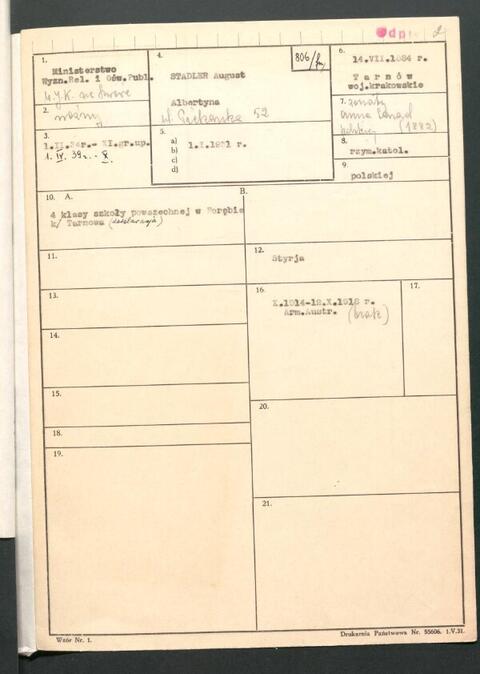 Odpi
2
1.
Ministerstwo
Wyzn.Rel. i Ośw.Publ.
U.J.K. we Lwowie
2.
woźny
3.
1.II.34r.- XI.gr.up.
1.IV.39... X
4.
806/
STADLER August
Albertyna
52
5.
a) 1.I.1921 r.
b)
c)
d)
6.
14.VII.1884 r.
Tarnów
woj.krakowskie
7. żonaty
Anna
(1882)
8.
rzym.katol.
9.
polskiej
10. A.
4 klasy szkoły powszechnej w Porębie
k/ Tarnowa (deklaracja)
B.
11.
12.
Styrja
13.
14.
15.
16.
X.1914-12.X.1918 r.
Arm.Austr. (brak)
17.
18.
19.
20.
21.
Wzór Nr. 1.
Drukarnia Państwowa Nr. 55606. 1.V.31.